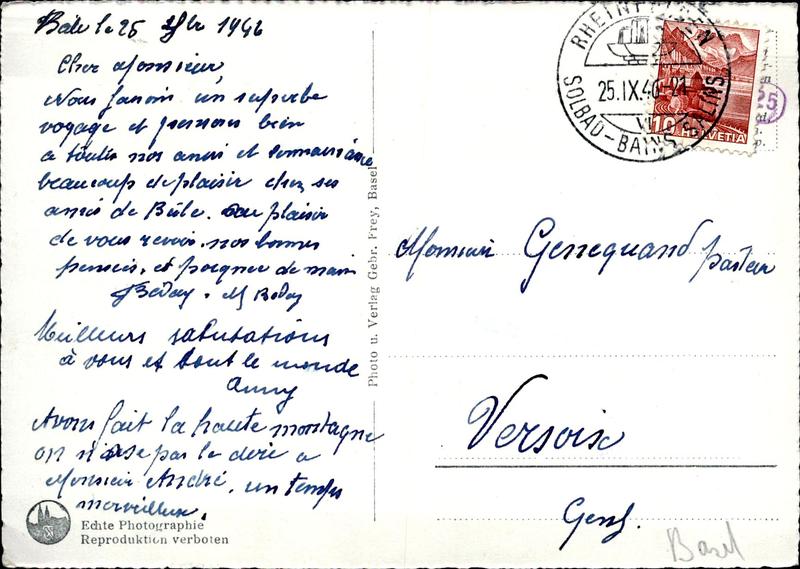 Bâle le 25 1946
Cher Monsieur
Nous faisons un superbe
voyage et pensons bien
à toutes nos amis et
beaucoup de plaisir chez ses
amis de Bâle. au plaisir
de vous revoir. nos bonnes
pensées, et poignée de main
Meilleurs salutations
à vous et tout le monde
Anny
Avons fait la haute montagne
on n'ose pas le dire a
Monsieur André. un temps
merveilleux.
Echte Photographie
Reproduktion verboten
Photo u. Verlag Gebr. Frey, Basel
RHEINFELDEN
25.IX.46-21
VII
SOLBAD-BAINS SALINS
10 HELVETIA
25
Monsieur Gennequand pasteur
Versoix
Genf.
Basel